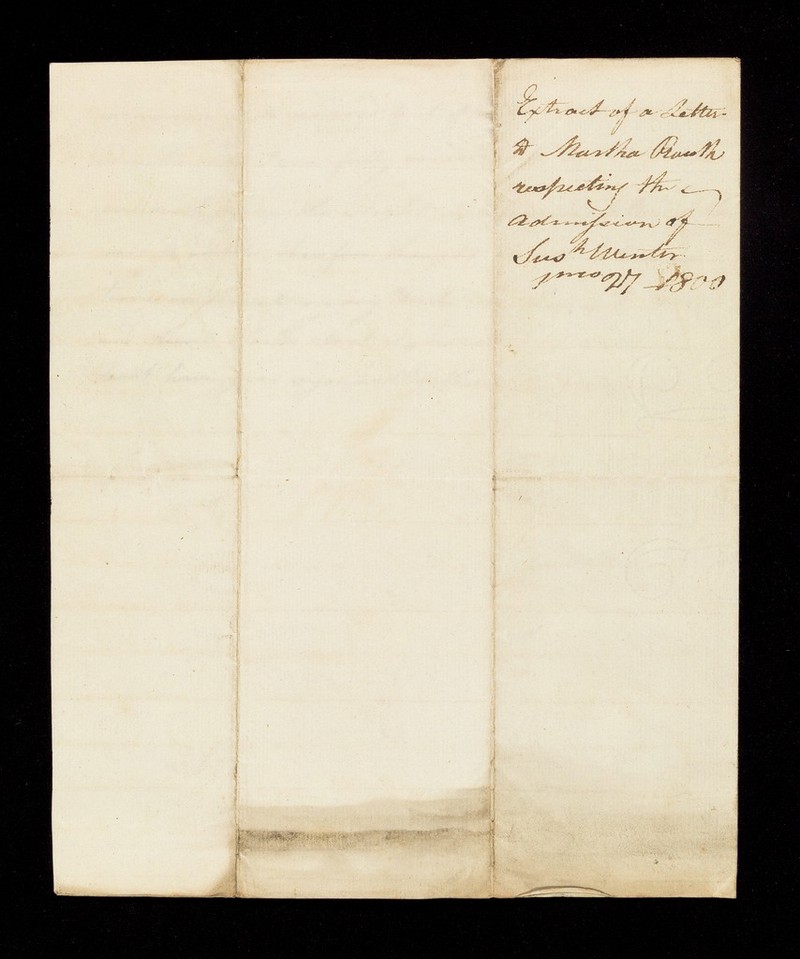 Extract of a Letter
Martha Routh
respecting the
admission of
Sus^h Winter
1mo 27 1800